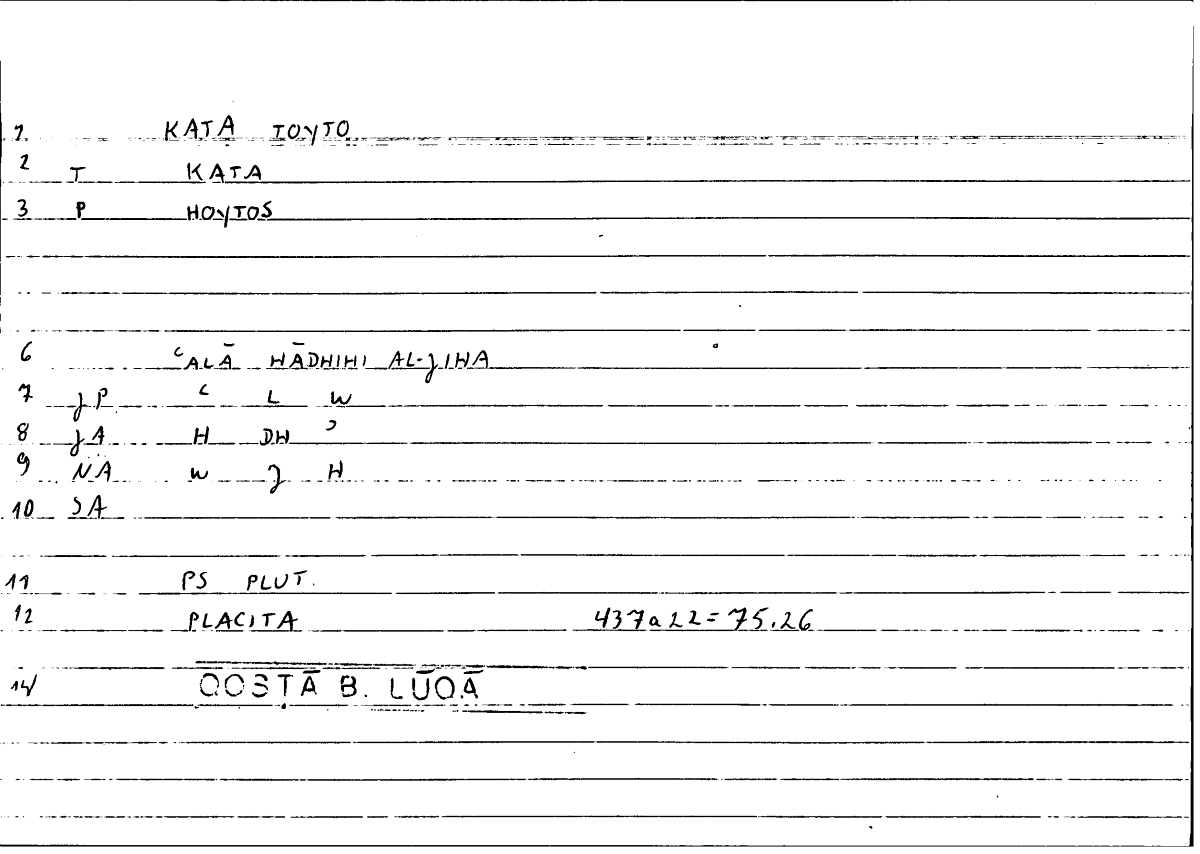 1. KATA TOYTO
2 T KATA
3 P HOYTOS
6 ʿALĀ HĀDHIHI AL-JIHA
7 JP ʿ L W
8 JA H DH ʾ
9 NA W J H
10 SA
11 PS PLUT.
12 PLACITA 437a22=75.26
14/ QOSṬĀ B. LŪQĀ